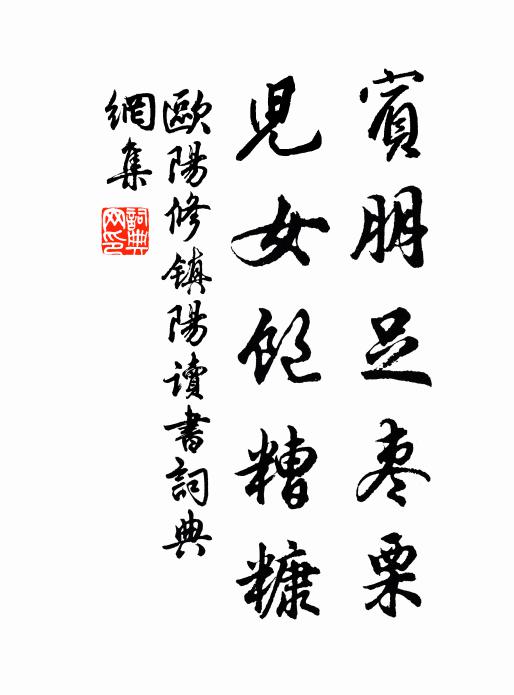 賓朋足棗栗
兒女飽糟糠
歐陽修鎮陽讀書詞典
網集
詞典
网印